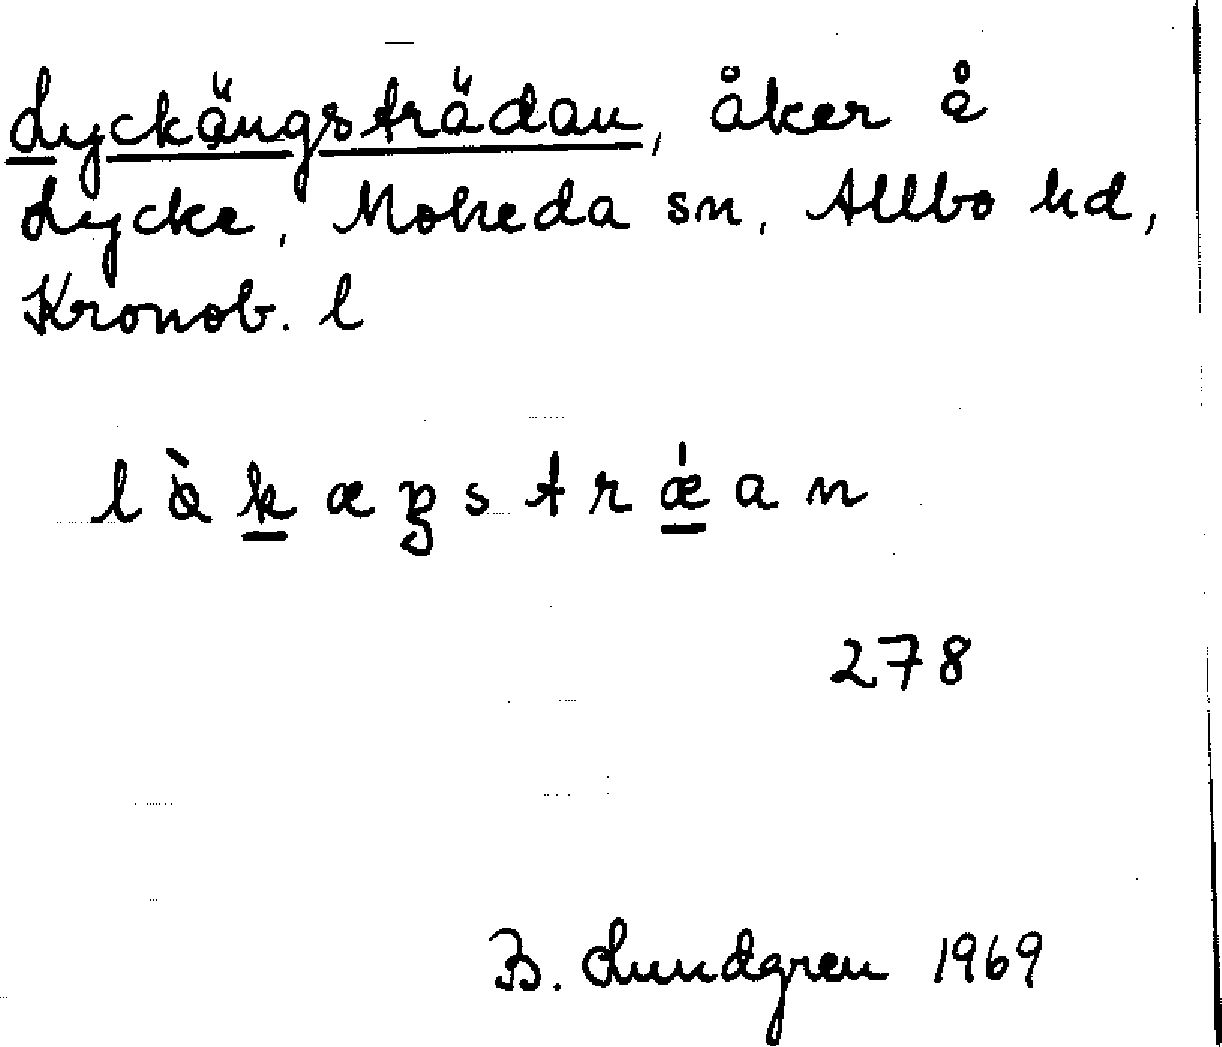 Lyckängsträdan, åker å
Lycke, Moheda sn, Allbo hd,
Kronob. l
278
B. Lundgren 1969